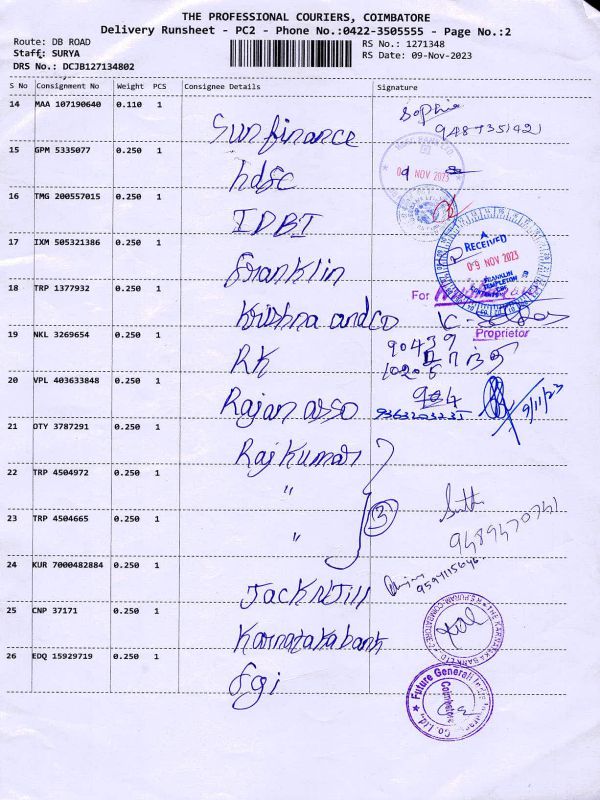 THE PROFESSIONAL COURIERS, COIMBATORE
Delivery Runsheet - PC2 - Phone No.:0422-3505555 - Page No.:2
Route: DB ROAD
Staff: SURYA
DRS No.: DCJB127134802
RS No.: 1271348
RS Date: 09-Nov-2023
S No Consignment No Weight PCS Consignee Details Signature
14 MAA 107190640 0.110 1 Sun finance Sophia
15 GPM 5335077 0.250 1 hdfc 09 NOV 2023
16 TMG 200557015 0.250 1 IDBI
17 IXM 505321386 0.250 1 Franklin RECEIVED 09 NOV 2023 FRANKLIN TEMPLETON
18 TRP 1377932 0.250 1 Krishna and co For
Proprietor
19 NKL 3269654 0.250 1 RK
20 VPL 403633848 0.250 1 Rajan asso 9/11/23
21 OTY 3787291 0.250 1 Raj Kumar
22 TRP 4504972 0.250 1 "
23 TRP 4504665 0.250 1 " 3 9489470741
24 KUR 7000482884 0.250 1 Jack N Jill
25 CNP 37171 0.250 1 Karnataka bank THE KARNATAKA BANK LTD.
26 EDQ 15929719 0.250 1 fgi Future Generali India Insurance Co. Ltd., Coimbatore